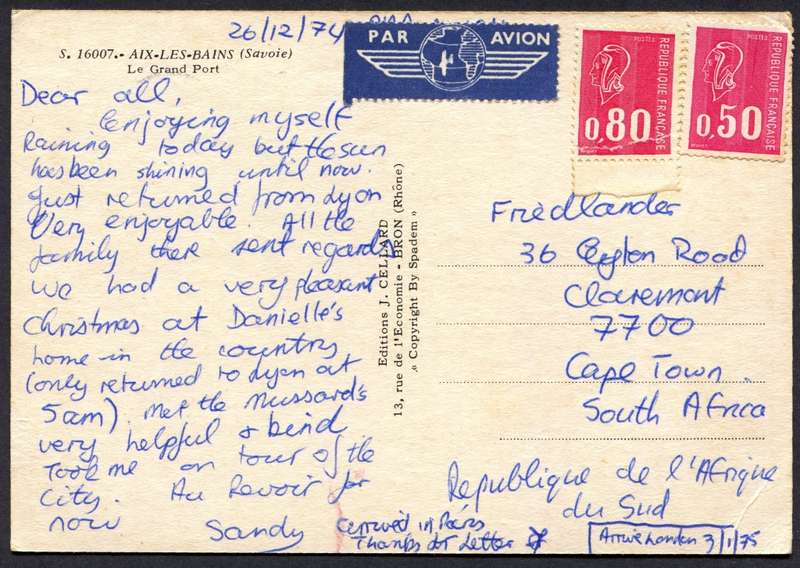 26/12/74
S. 16007.- AIX-LES-BAINS (Savoie)
Le Grand Port
PAR AVION
POSTES
REPUBLIQUE FRANÇAISE
0,80
POSTES
REPUBLIQUE FRANÇAISE
0,50
Dear all,
Enjoying myself
Raining today but the sun
has been shining until now.
Just returned from Lyon
Very enjoyable. All the
family there sent regards
We had a very pleasant
Christmas at Danielle's
home in the country
(only returned to Lyon at
5am). Met the Mussard's
very helpful & kind
Took me on tour of the
City. Au Revoir for
now Sandy
in Paris
Thanks for Letter
Editions J. CELLARD
13, rue de l'Economie - BRON (Rhône)
« Copyright By Spadem »
Friedlander
36 Ceylon Road
Claremont
7700
Cape Town.
South Africa
Republique de l'Afrique
du Sud
Arrive London 3/1/75